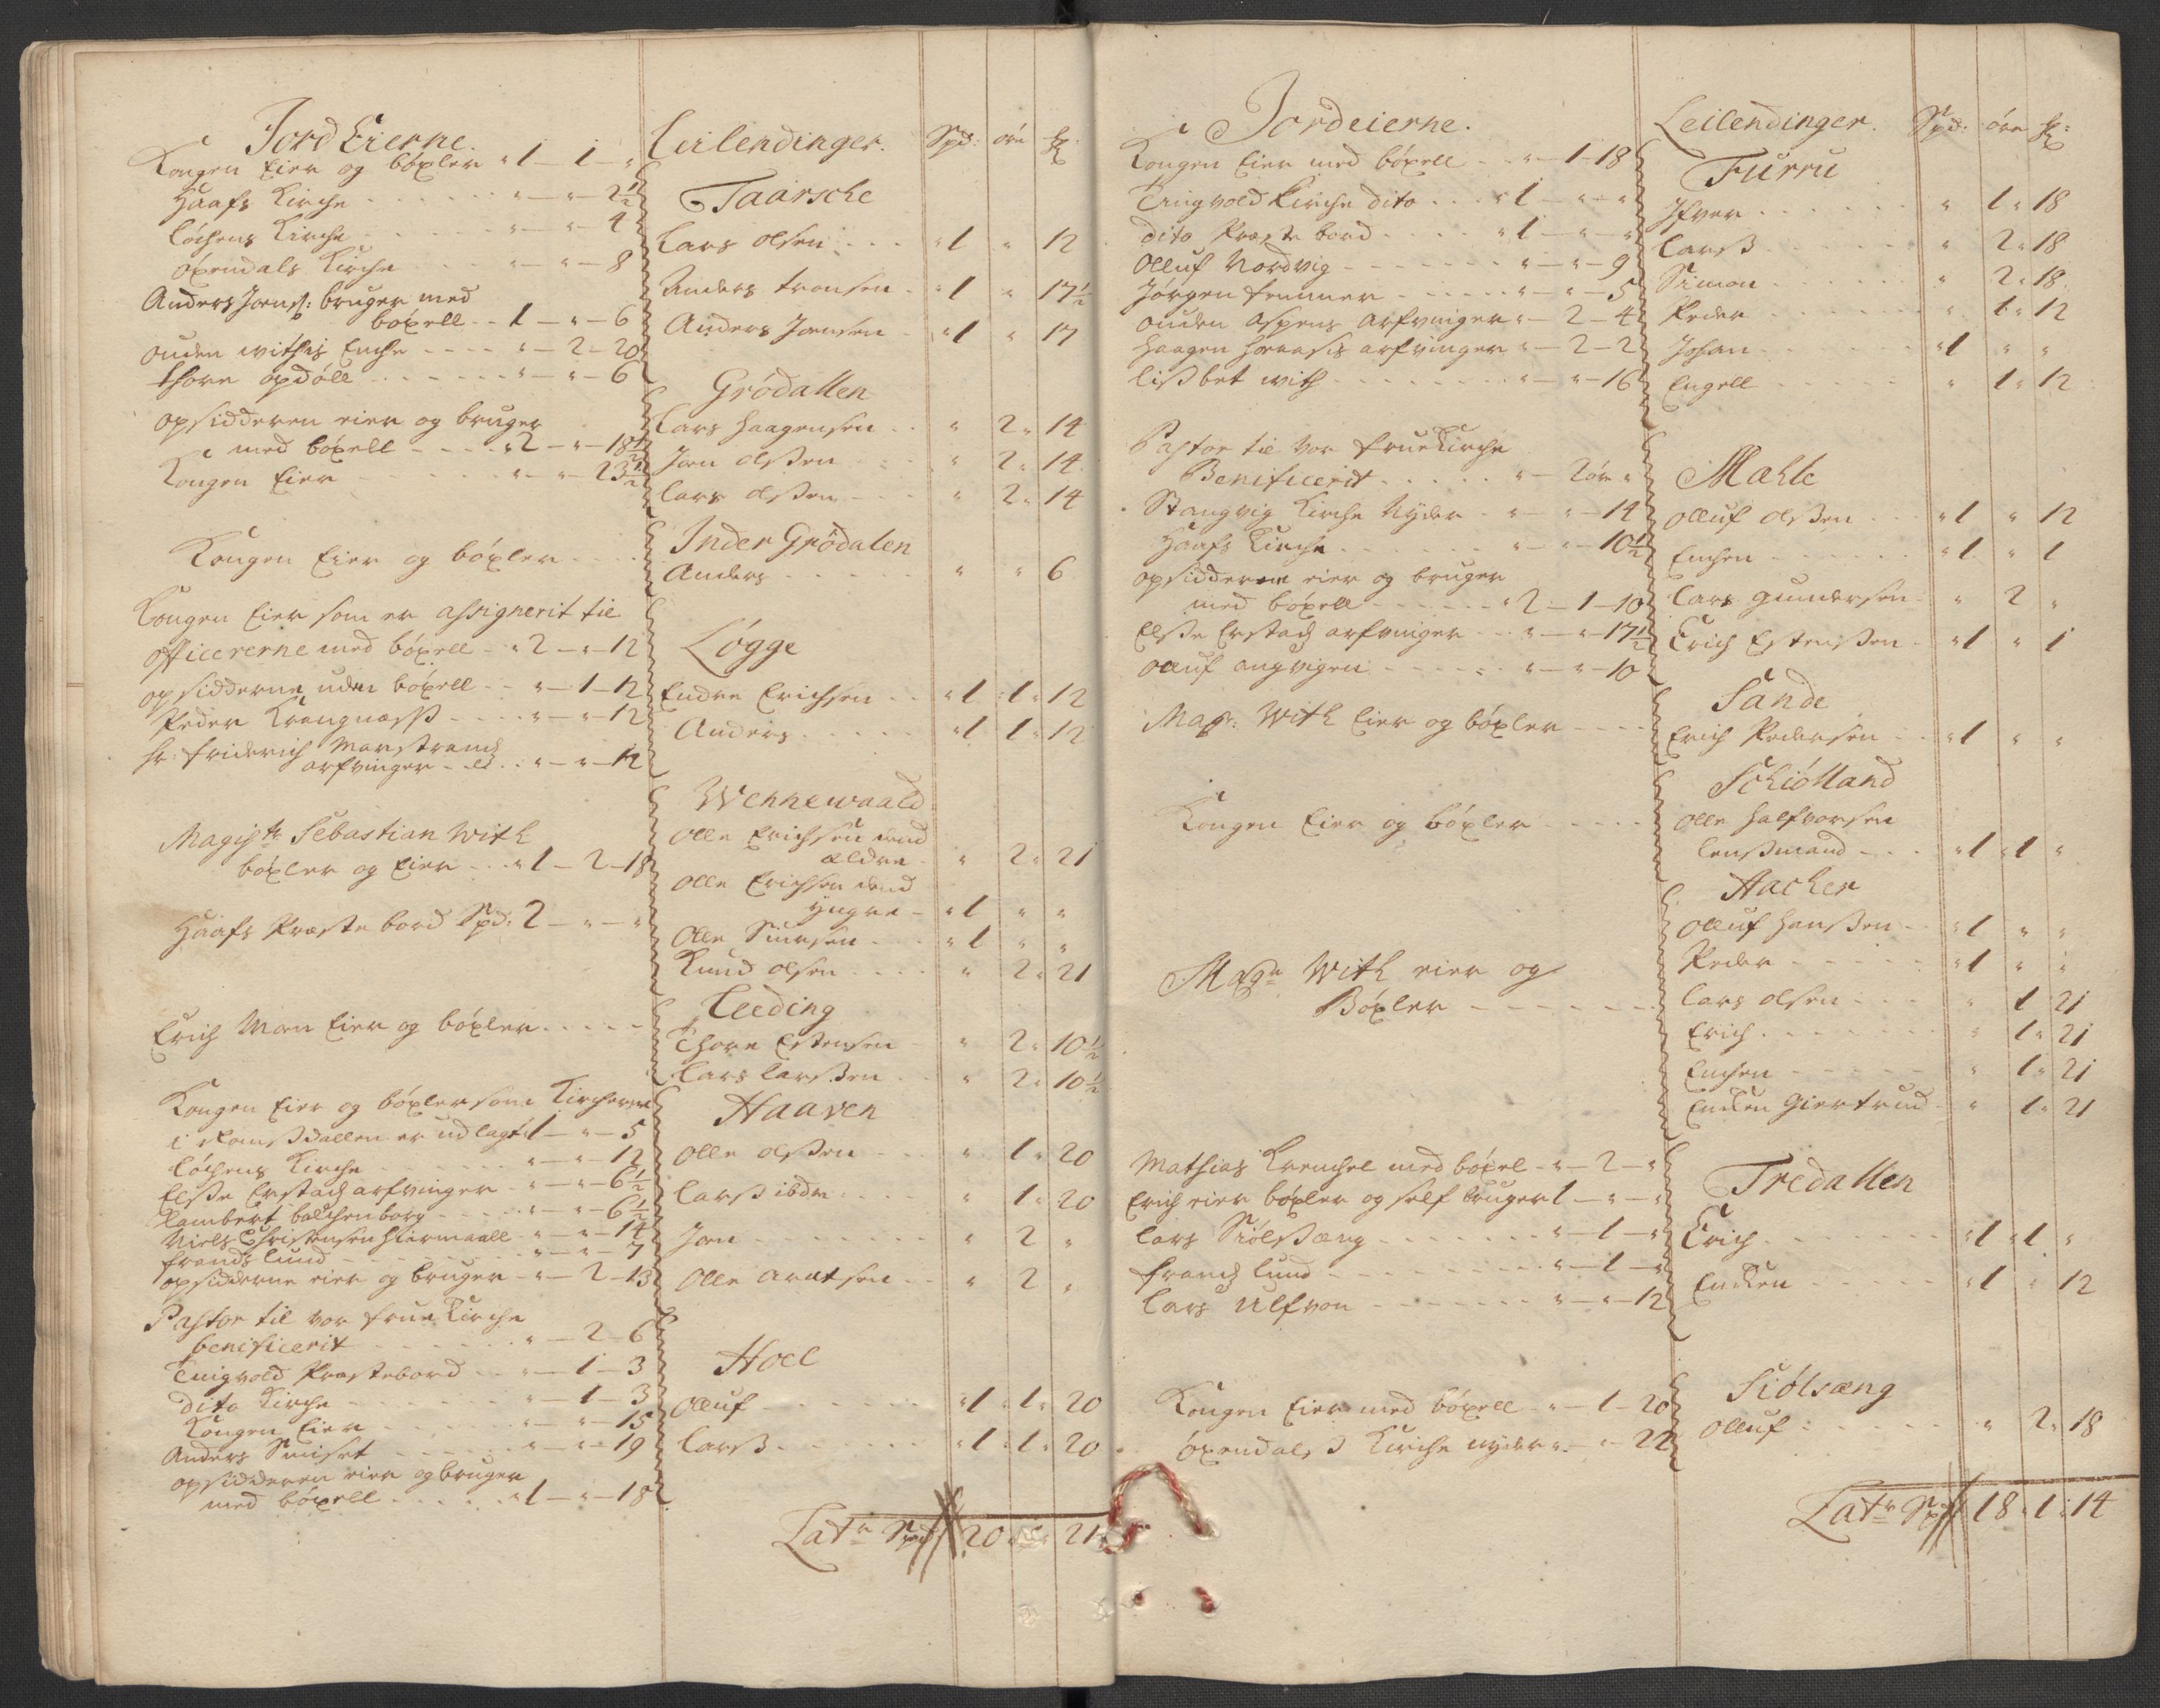 Jord Eierne.
Kongen Eier og böxler " 1 — 1 — "
Haafs Kirche . . . . . . " — " — 2½
Löchens Kirche . . . . . " — " — 4
öxendals Kirche . . . . " — " — 8
Anders Joens: bruger med
böxell - - 1 — " — 6
ouden withis Enche - - - - " — 2 — 20
thore opdöll - - - - - - - " — " — 6
opsidderen eier og bruger
med böxell - - - - " 2 — " — 18½
Kongen Eier - - - - - - " — " — 23½
Kongen Eier og böxler - - - -
Kongen Eier som er assignerit til
officererne med böxell - " 2 — " — 12
opsidderne uden böxell - - " — 1 — 12
Peder Krongnæss - - - - " — " — 12
hr: friderich Marstrand
arfvinger - - - " — " — 12
Magistr Sebastian With
böxler og Eier - - " 1 — 2 — 18
Haafs Præste bord Spd: 2 — " — "
Erich Mon Eier og böxler - - - - -
Kongen Eier og böxler som Kircherne
i Romssdallen er udlagt 1 — " — 5
Löchens Kirche - - - - - " — " — 12
Elsse Erstads arfvinger - " — " — 6½
Lambert balchenborg - - - " — " — 6½
Niels Christensen Hiermaall - " — " — 14
frands lund - - - - - - " — " — 7
opsidderne eier og bruger - " — 2 — 13
Pastor til vor frue Kirche
benificerit - - - - - - " — 2 — 6
Tingvold Præstebord - - " — 1 — 3
dito Kirche - - - - - - " — 1 — 3
Kongen Eier - - - - - - " — " — 15
Anders Smiset - - - - - " — " — 19
opsidderen eier og bruger
med böxell - - - - - " 1 — " — 18
Leilendinger. Spd: öre
Taarsche
Lars olsen - - - " 1 " 12
Anders tronsen - " 1 " 17½
Anders Joensen - " 1 " 17
Grödallen
Lars Haagensen - - " 2 " 14
Joen olssen - - - " 2 " 14
Lars olssen - - - " 2 " 14
Inder Grödalen
Anders - - - - - " " 6
Lögge
Endre Erichsen - - " 1 " 1 " 12
Anders - - - - - " 1 1 " 12
Wennewaald
Olle Erichsen dend
ældre - " 2 " 21
Olle Erichsen dend
yngre - " 1 " "
Olle Siursen - - - " 1 " "
Knud olsen - - - " 2 " 21
Leeding
Thore Estensen - " 2 " 10½
Lars larssen - - " 2 " 10½
Haaven
Olle olssen - - - " 1 " 20
Larss ibdm - - - " 1 " 20
Jon - - - - - - " 2 "
Olle Arntsen - - " 2 "
Hoel
Olluf - - - - - - " 1 " 1 " 20
Larss - - - - - - " 1 " 1 " 20
Latr Spd 20 " 21
Jordeierne.
Kongen Eier med böxell - - " — 1 — 18
Tingvold Kirche dito - - - " 1 — " — "
dito Præste bord - - - - " 1 — " — "
Olluf Nordvig - - - - - - " — " — 9
Jörgen femmer - - - - - " — " — 5
ouden aspens Arfvinger " — 2 — 4
Haagen arfvinger " — 2 — 2
lissbet with - - - - - - - " — " — 16
Pastor til vor frue Kirche
Benificerit - - - - - " — 2 öre "
Stangvig Kirche Nyder - " — " — 14
Haafs Kirche - - - - - " — " — 10½
opsidderne eier og bruger
med böxell - - - - - - " 2 — 1 — 10
Elsse Erstads arfvinger - - " — " — 17½
Olluf angvigen - - - - - " — " — 10
Magr: With Eier og böxler - - - -
Kongen Eier og böxler - - - - -
Magr With eier og
Böxler - - - - - - -
Mathias Krenchel med böxel - " — 2 — "
Erich eier böxler og self bruger 1 — " — "
Lars Siölssæng - - - - - - " — 1 — "
frands lund - - - - - - - " — 1 — "
Lars Ulfven - - - - - - " — " — 12
Kongen Eier med böxell - " — 1 — 20
öxendals Kirche nyder " — " — 22
Leilendinger. Spd: öre
Furru
Ifver - - - - - " 1 " 18
Larss - - - - - " 2 " 18
Simon - - - - - " 2 " 18
Peder - - - - - " 1 " 12
Johan - - - - - " 1 " "
Engell - - - - - " 1 " 12
Mæhle
Olluf olssen - - - " 1 " 12
Enchen - - - - - " 1 " 1
Lars gundersen - " 2 "
Erich Estenssen - " 1 " 1
Sande
Erich Pedersen - - " 1 " "
Schiölland
Olle Halfvorsen
lenssmand - - - " 1 " 1 "
Aacher
Olluf Hanssen - - " 1 " "
Peder - - - - - " 1 " "
Lars olsen - - - " 1 21
Erich - - - - - - " 1 " 21
Enchen - - - - - " 1 " 21
Encken Giertrud - " 1 " 21
Tredallen
Erich - - - - - - " 1 " 1 "
Encken - - - - - " 1 " 12
Siölsæng
Olluf - - - - - - " 2 " 18
Latr Spd 18 " 1 " 14